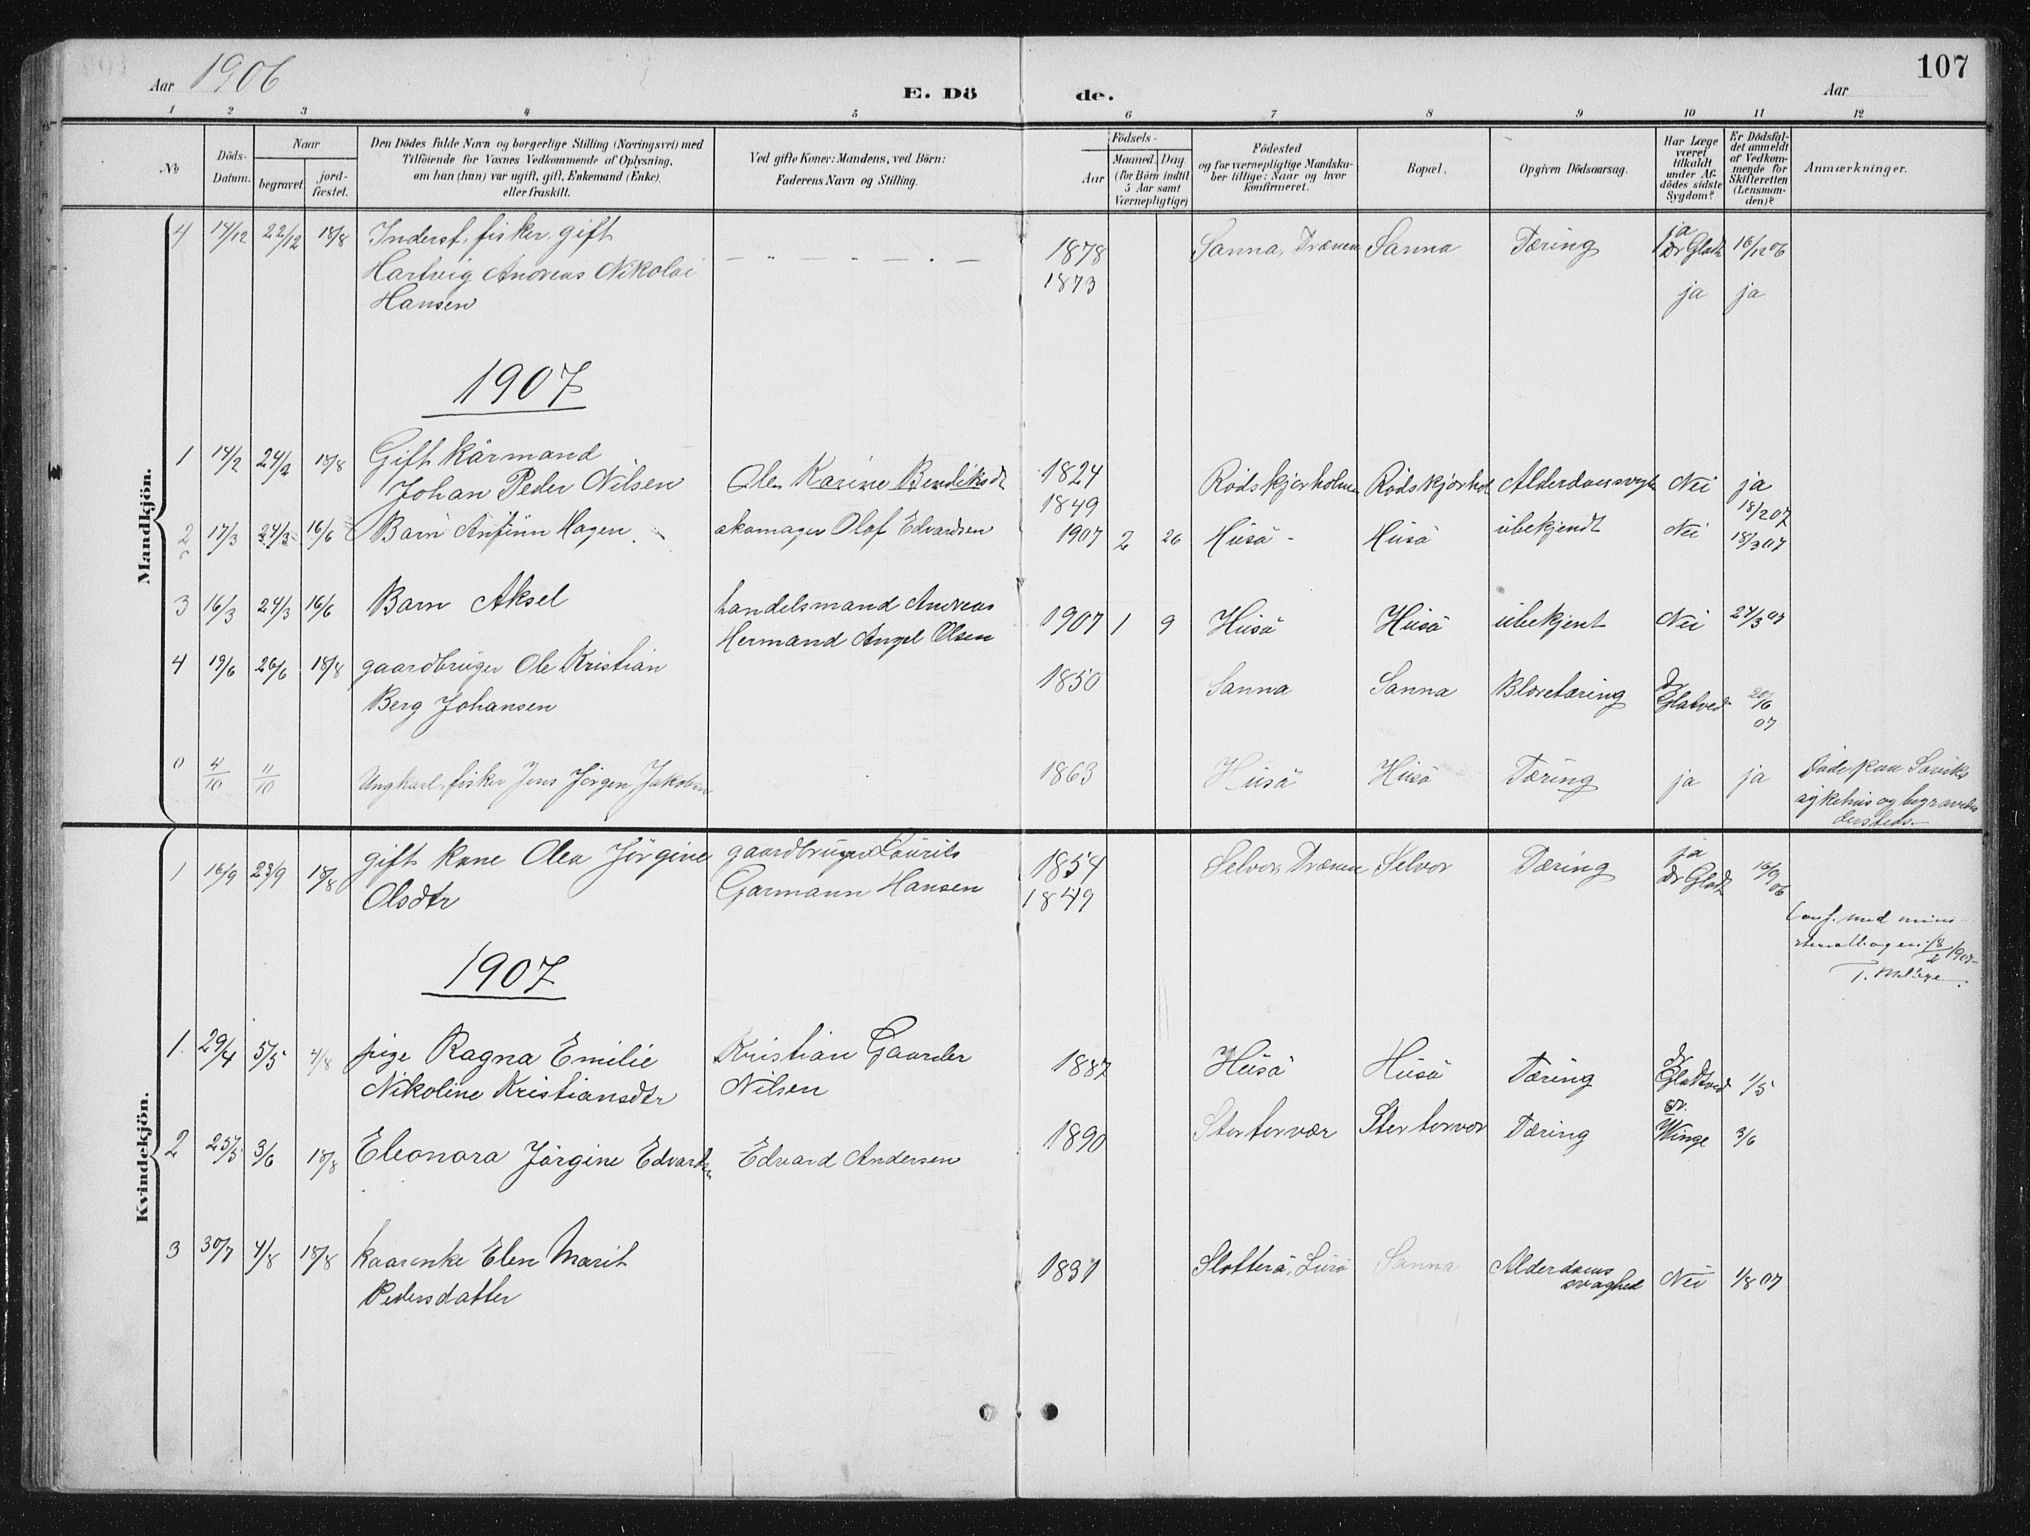 Aar 1906
E. Dö
de.
Aar
107
1 2 3 4 5 6 7 8 9 10 11 12
No
Döds-
Datum.
Naar
begravet.
jord-
fæstet.
Den Dödes fulde Navn og borgerlige Stilling (Næringsvei) med
Tilföiende for Voxnes Vedkommende af Oplysning,
om han (hun) var ugift, gift, Enkemand (Enke),
eller fraskilt.
Ved gifte Koner: Mandens, ved Börn:
Faderens Navn og Stilling.
Födsels-
Aar
Maaned. Dag.
(for Börn indtil
5 Aar samt
Værnepligtige)
Födested
og for værnepligtige Mandska-
ber tillige: Naar og hvor
konfirmeret.
Bopæl.
Opgiven Dödsaarsag.
Har Læge
været
tilkaldt
under Af-
dödes sidste
Sygdom?
Er Dödsfal-
det anmeldt
af Vedkom-
mende for
Skifteretten
(Lensman-
den)?
Anmærkninger.
Mandkjön.
4 14/12 22/12 18/8 Inderst, fisker, gift
Hartvig Andreas Nikolai
Hansen
1878
1873
Sanna, Trænen Sanna Tæring
ja
Dr Glatv
16/12 06
ja ja
1907
1 14/2 24/2 18/8 Gift kårmand
Johan Peder Nilsen
Ole Karine Bendiksdt
1824
1849
Rødskjærholmen Rødskjærhol Alderdomssvagh Nei ja
18/2 07
2 17/3 24/3 16/6 Barn Anfinn Hagen
skomager Olaf Edvardsen
1907 2 26 Husö Husö ubekjendt Nei 18/3 07
3 16/3 24/3 16/6 Barn Aksel
handelsmand Andreas
Hermand Angel Olsen
1907 1 9 Husö Husö ubekjent Nei 24/3 07
4 19/6 26/6 18/8 gaardbruger Ole Kristian
Berg Johansen
1850 Sanna Sanna Blæretæring
dr
Glatved
20/6
07
0 4/10 11/10 Ungkarl, fisker Jens Jörgen Jakobsen
1863 Husö Husö Tæring ja ja
Döde paa Søviks
sykehus og begravedes
dersteds.
Kvindekjön.
1 16/9 23/9 18/8 gift kone Olea Jörgine
Olsdtr
gaardbruger Laurits
Garmann Hansen
1854
1849
Selvor, Trænen Selvor Tæring
ja
Dr Glatv
16/9
06
Conf. med mini-
sterialbogen 18/2 1907
1907
1. 29/4 5/5 4/8 pige Ragna Emilie
Nikoline Kristiansdtr
Kristian Gaarder
Nilsen
1887 Husö Husö Tæring
dr
Glatved
1/5
2 25/5 3/6 18/8 Eleonora Jörgine Edvardsen
Edvard Andersen
1890 Stortorvær Stortorvær Tæring
dr.
Winge
3/6
3 30/7 4/8 18/8 kaarenke Elen Marit
Pedersdatter
1831 Slotterö, Lurö Sanna Alderdoms
svaghed
Nei 1/8 07